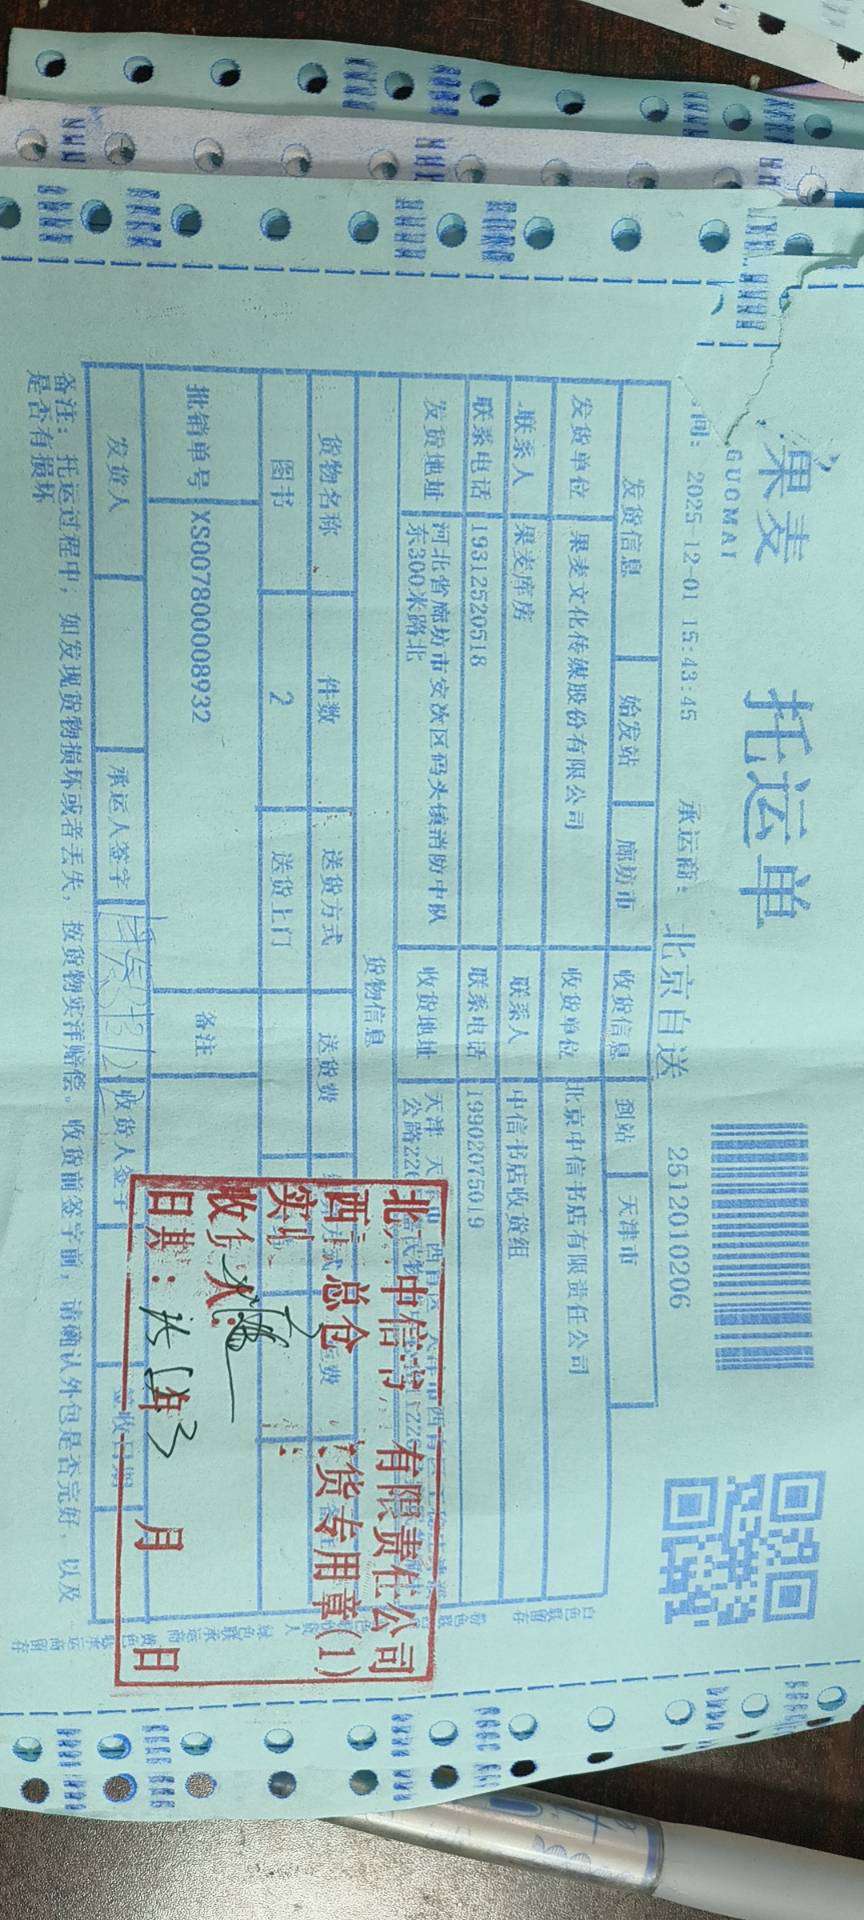 果麦
GUOMAI
托运单
间: 2025-12-01 15:43:45
承运商: 北京自送
2512010206
发货信息 始发站 廊坊市 收货信息 到站 天津市
发货单位 果麦文化传媒股份有限公司 收货单位 北京中信书店有限责任公司
联系人 果麦库房 联系人 中信书店收货组
联系电话 19312520518 联系电话 19902075019
发货地址 河北省廊坊市安次区码头镇消防中队
东300米路北
收货地址 天津
货物信息
货物名称 件数 送货方式 送货费
图书 2 送货上门
批销单号 XS007800008932 备注
发货人 承运人签字 收货人签字 签收日期
备注: 托运过程中, 如发现货物损坏或者丢失, 按货物实洋赔偿。收货前签字前, 请确认外包是否完好, 以及
是否有损坏
北 中信书 有限责任公司
西 总仓 货专用章(1)
实
收货人:
日期: 月 日